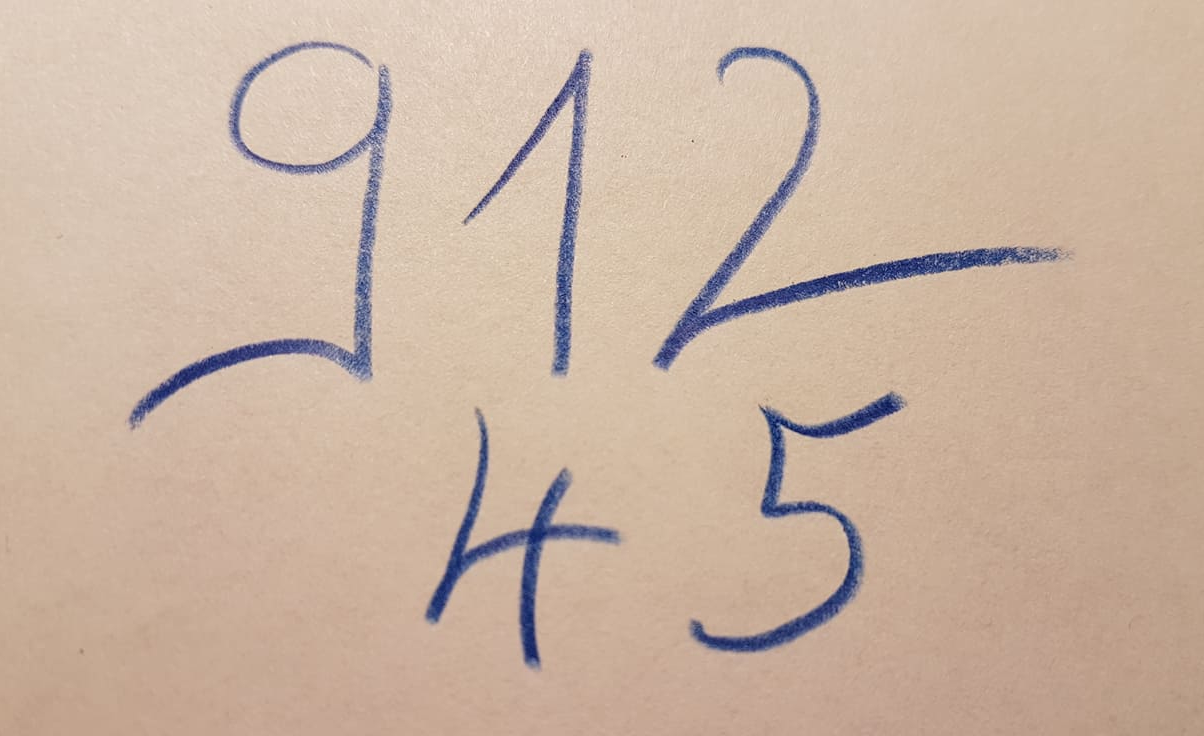 912
45